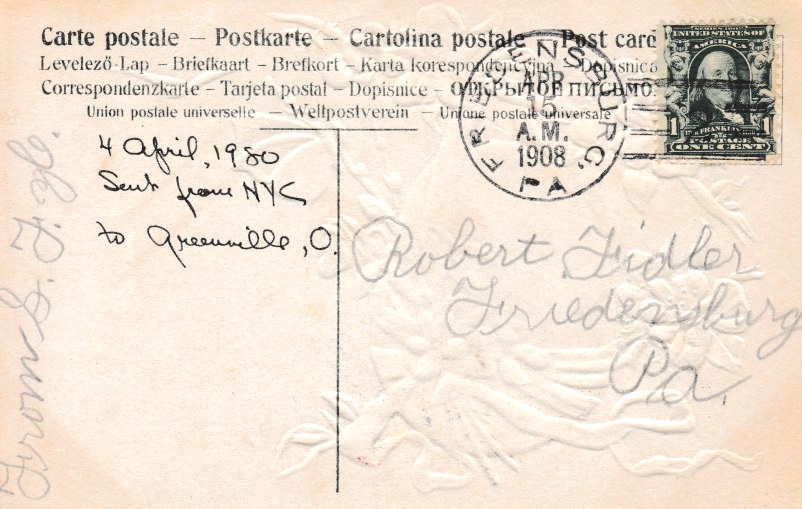 Carte postale – Postkarte – Cartolina postale – Post card
Levelező-Lap – Briefkaart – Brefkort – Karta korespondencyjna – Dopisnica
Correspondenzkarte – Tarjeta postal – Dopisnice – ОТКРЫТОЕ ПИСЬМО.
Union postale universelle – Weltpostverein – Unione postale universale
FREDENSBURG
APR
15
A.M.
1908
PA
UNITED STATES OF
AMERICA
1 FRANKLIN 1
POSTAGE
ONE CENT
4 April, 1980
Sent from NYC
to Greenville, O.
Robert Fidler
Friedensburg
Pa.
From